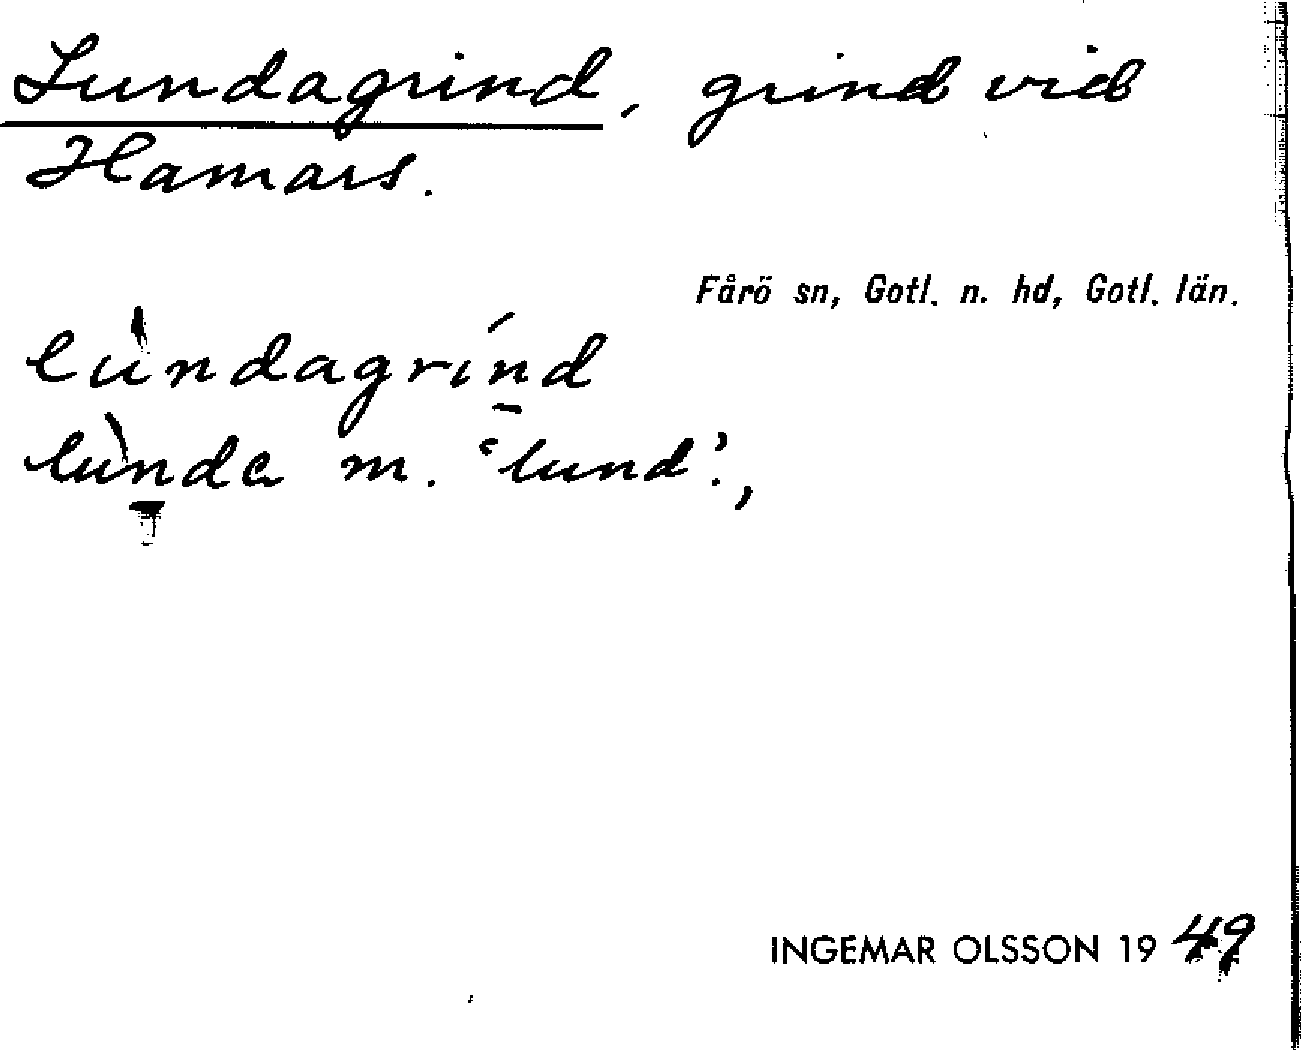 Lundagrind, grind vid
Hamars.
Fårö sn, Gotl. n. hd, Gotl. län.
lùndagrín̠d
lùn̠da m. ‘lund’.,
INGEMAR OLSSON 1949